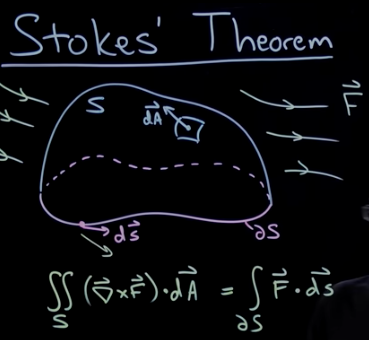 Stokes' Theorem
S
dA⃗
F⃗
ds⃗
∂S
∬_S (∇⃗×F⃗)·dA⃗ = ∫_∂S F⃗·ds⃗